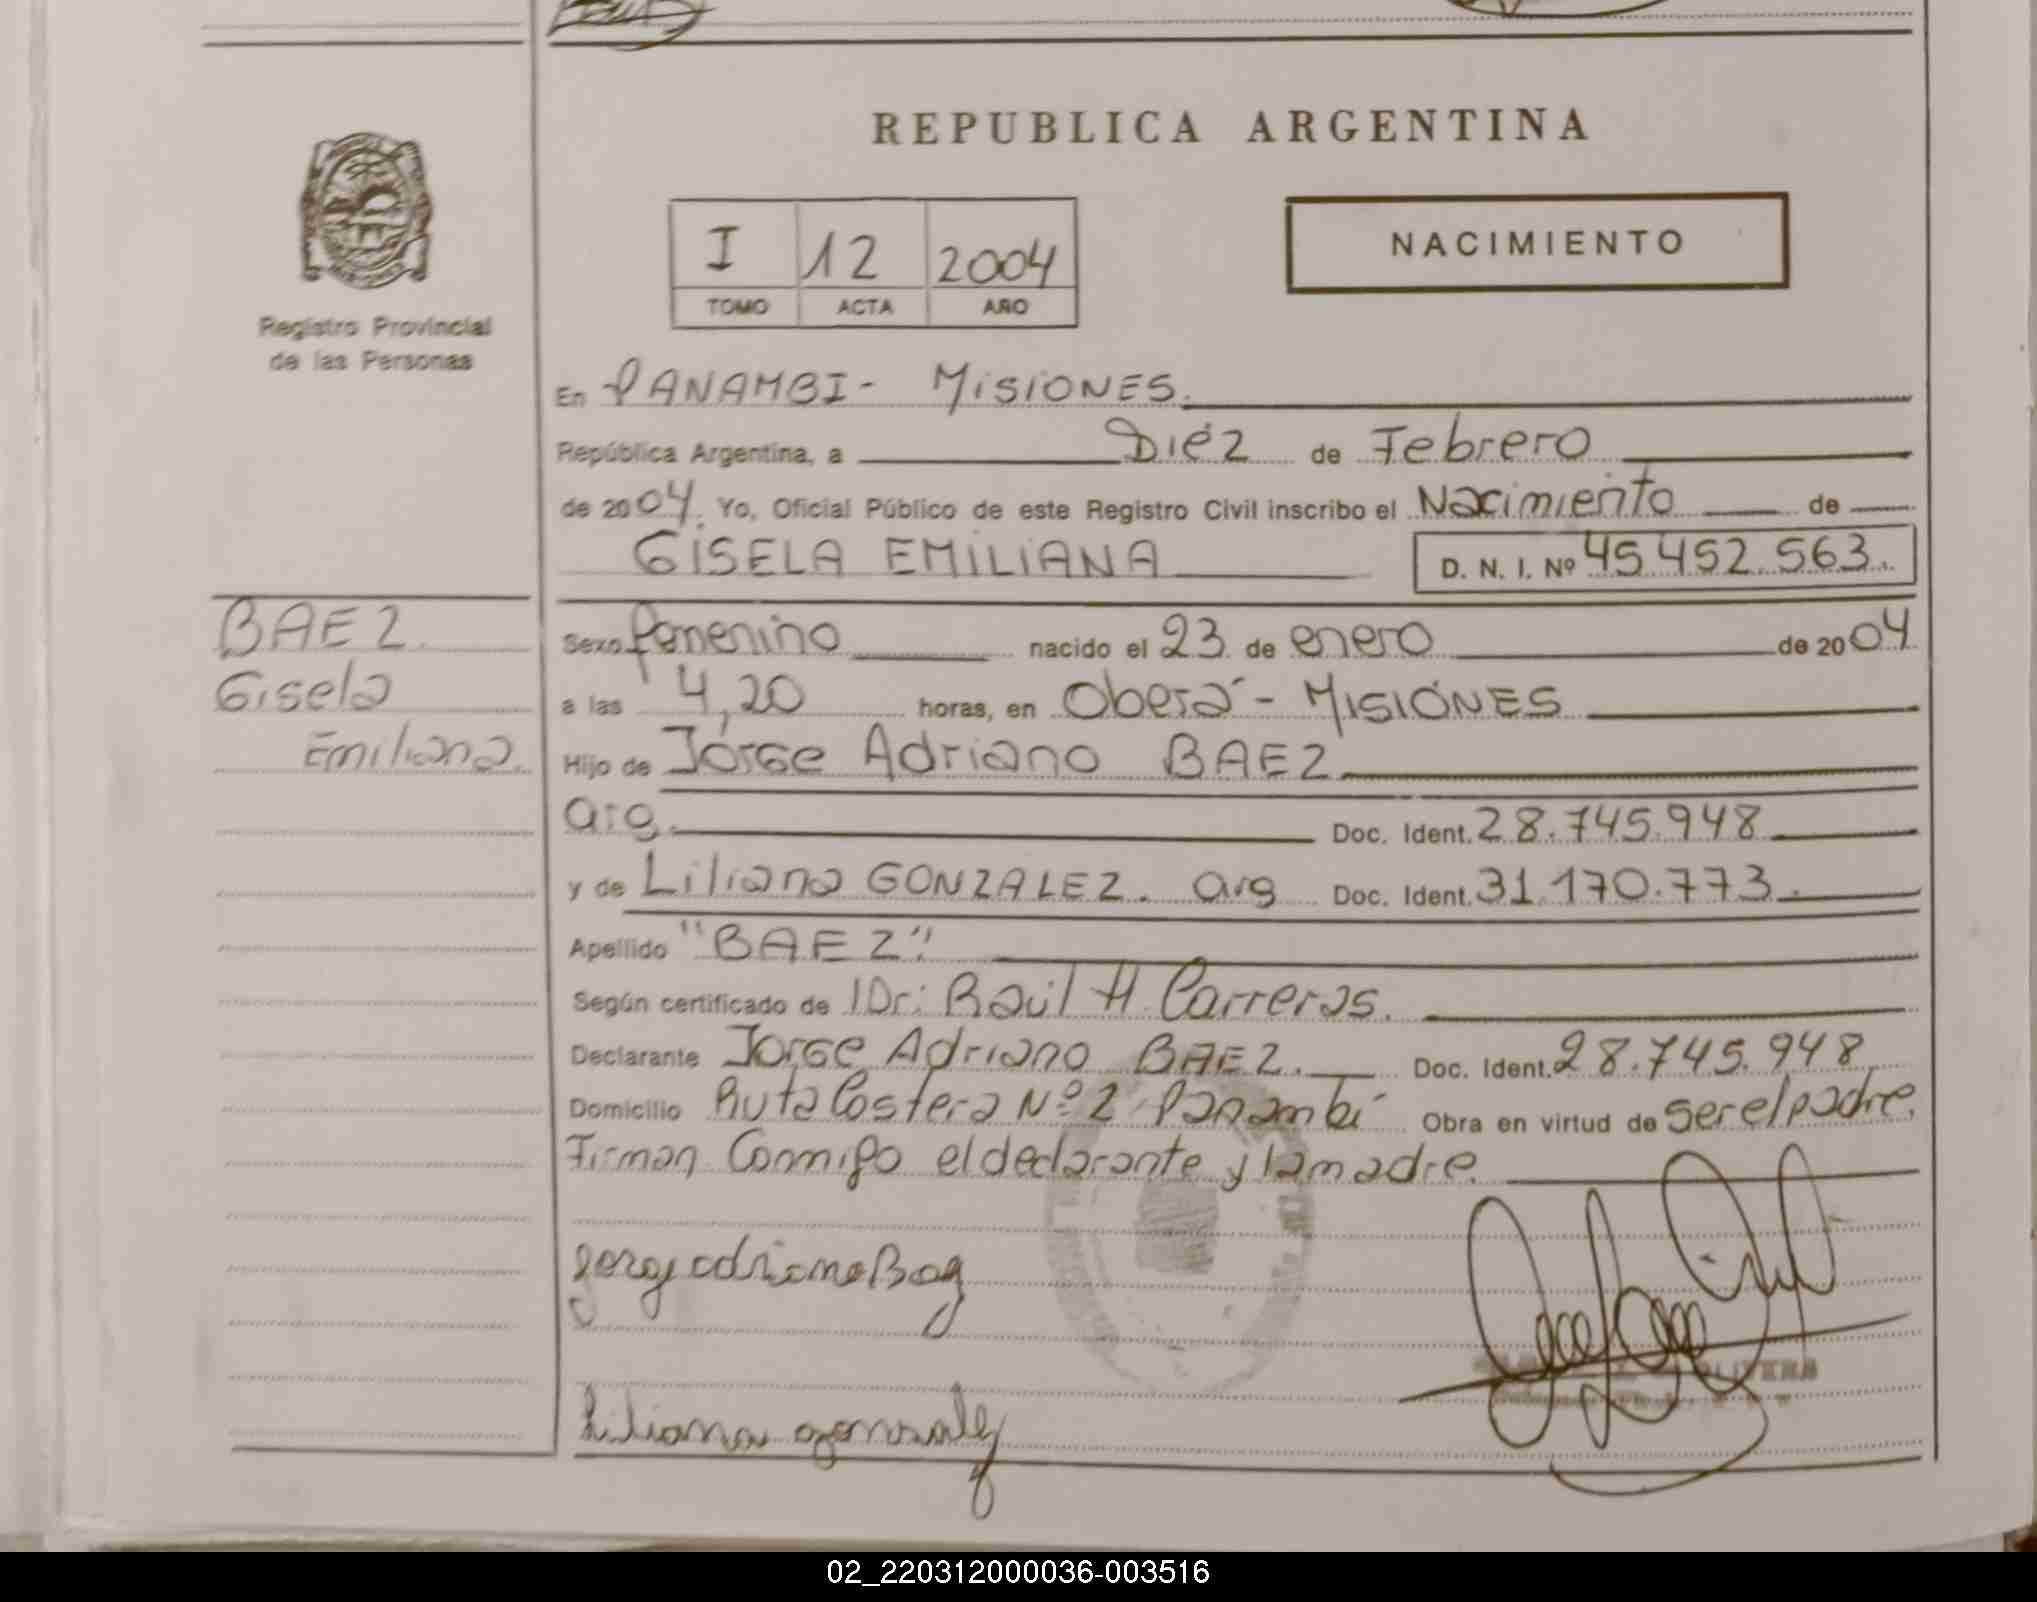 REPUBLICA ARGENTINA
I 12 2004
TOMO ACTA AÑO
NACIMIENTO
Registro Provincial
de las Personas
En PANAMBI - MISIONES.
República Argentina, a Diéz de Febrero
de 2004. Yo, Oficial Público de este Registro Civil inscribo el Nacimiento de
GISELA EMILIANA D. N. I. Nº 45.452.563.
BAEZ
Gisela
Emiliana.
Sexo femenino nacido el 23 de enero de 2004
a las 4,20 horas, en Oberá - MISIONES
Hijo de Jorge Adriano BAEZ
arg. Doc. Ident. 28.745.948
y de Liliana GONZALEZ. arg Doc. Ident. 31.170.773.
Apellido "BAEZ".
Según certificado de Dr: Raúl H. Carreras.
Declarante Jorge Adriano BAEZ. Doc. Ident. 28.745.948
Domicilio Ruta Costera Nº 2 Panambí Obra en virtud de ser el padre.
Firman Conmigo el declarante y la madre.
Liliana gonzalez
02_220312000036-003516